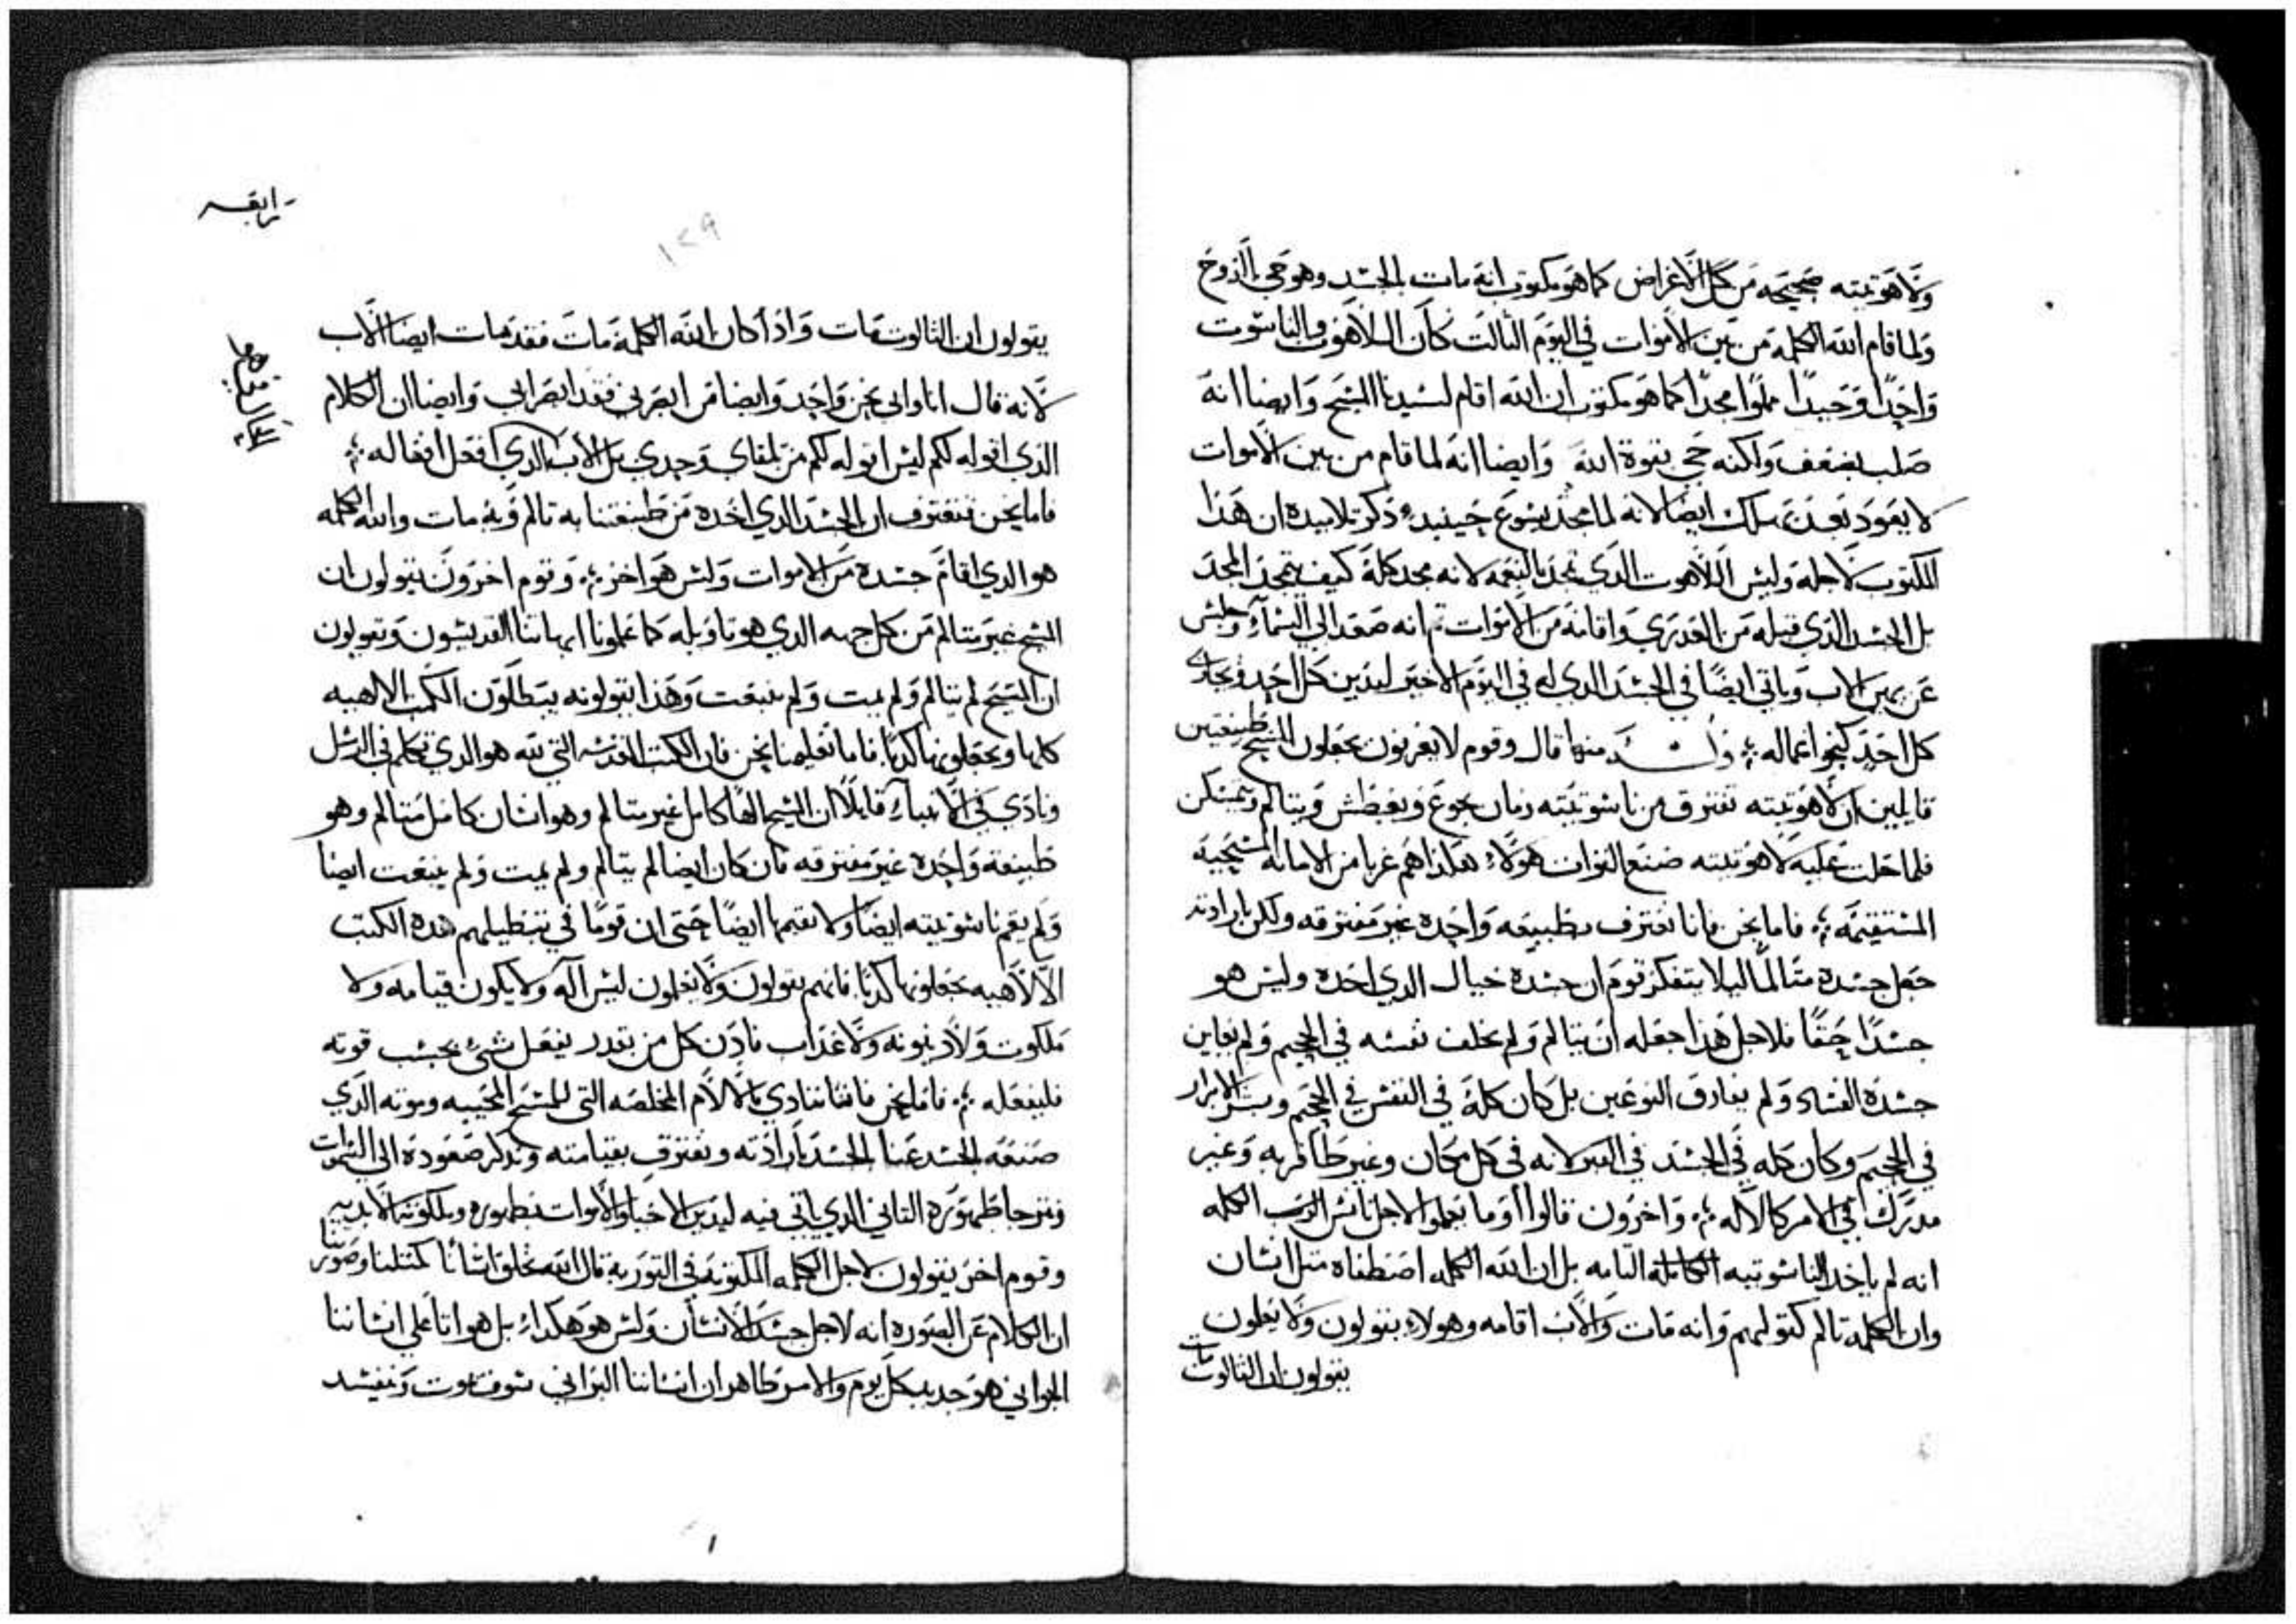 ولاهوتيته صحيحه من كل الاغراض كما هو مكتوب انه مات بالجسد وهو حي بالروح
ولما قام الله الكلمة من بين الاموات في اليوم الثالت كان اللاهوت والناسوت
واحدًا وحيدًا مملوا مجدًا كما هو مكتوب ان الله اقام لسيدنا المسيح وايضا انه
صلب بضعف ولكنه حي بقوة الله وايضا انه لما قام من بين الاموات
لا يعود بعد يملك ايضًا لانه لما مجد يسوع حينيدٍ ذكر تلاميده ان هذا
المكتوب لاجله وليس اللاهوت الدي تمجد بالنعمه لانه مجد كله كيف يتمجد المجد
بل الجسد الدي قبله من العدرى واقامه من الاموات تم انه صعد الي السماءِ وجلس
عن يمين الاب وياتي ايضًا في الجسد الدي له في اليوم الاخير ليدين كل احد ويجازي
كل احد كنحو اعماله ؞ منها قال وقوم لا يعرفون يجعلون المسيح طبيعتين
قايلين ان لاهوتيته تفترق من ناسوتيته زمان يجوع ويعطش ويتالم ويتمسكن
فلما حلت عليه لاهوتيته صنع القوات هولاءِ هكذا هم غربا من الامانه المسيحية
المستقيمه ؞ فاما نحن فانا نعترف بطبيعه واحده غير مفترقه ولكن بارادته
جعل جسده متالمًا ليلا يتفكر قوم ان جسده خيال الدي اخده وليس هو
جسدًا حقًا فلاجل هذا جعله ان يتالم ولم يخلف نفسه في الجحيم ولم يعاين
جسده الفساد ولم يفارق النوعين بل كان كلهُ في النفس في الجحيم وبشر الابرار
في الجحيم وكان كله في الجسد في القبر لانه في كل مكان وغير طافر به وغير
مدرك في الامر كالاله ؞ واخرون قالوا اوما تعلموا لاجل تانس الرب الكلمه
انه لم ياخد الناسوتيه الكامله التامه بل ان الله الكلمه اصطفاه متل انسان
وان الكلمة تالم كقولهم وانه مات والاب اقامه وهولاءِ يقولون ولا يعلون
يقولون ان التالوت مات
ترابقه
١٢٩
يقولون ان التالوت مات واذا كان الله الكلمة مات فقد مات ايضا الاب
لانه قال انا وابي نحن واحد وايضا من ابصرني فقد ابصر ابي وايضا ان الكلام
الذي اقوله لكم ليس اقوله لكم من تلقاي وحدي بل الاب الدي افعل افعاله ؞
فاما نحن فنعترف ان الجسد الدي اخده من طبيعتنا به تالم وبه مات والله الكلمه
هو الدي اقام جسده من الاموات وليس هو اخر ؞ وقوم اخرون يقولون ان
المسيح غير متالم من كل جهه الدي هو تاويله كما علمونا ابهاتنا القديسون ويقولون
ان المسيح لم يتالم ولم يمت ولم ينبعت وهذا بقولونه يبطلون الكتب الالاهيه
كلها ويجعلونها كدبًا فاما تعليمنا نحن فان الكتب المقدسه التي لله هو الدي تكلم في الرسل
ونادي في الانبياءِ قايلًا ان المسيح الهًا كامل غير متالم وهو انسان كامل متالم وهو
طبيعة واحده غير مفترقه فان كان ايضا لم يتالم ولم يمت ولم ينبعت ايضا
ولم يقم ناسوتيته ايضًا ولا يقيمها ايضًا حتى ان قومًا في تبطيلهم هده الكتب
الالاهيه يجعلونها كدبًا فانهم يقولون ولا يعلون ليس اله ولا يكون قيامه ولا
ملكوت ولا دينونه ولا عذاب فادن كل من يقدر يفعل شئ بحسب قوته
فليفعله ؞ فاما نحن فاننا ننادي بالالام المخلصه التي للمسيح المحييه وموته الدي
صنعه بالجسد عنا بالجسد بارادته ونعترف بقيامته وندكر صعوده الي السموات
ونترجا ظهوره التاني الدي ياتي فيه ليدين الاحيا والاموات بظهوره وملكوته الابديه
وقوم اخر يقولون لاجل الكلمه المكتوبه في التوريه قال الله نخلق انسانًا كمتلنا وصورتنا
ان الكلام عن الصوره انه لاجل جسد الانسان وليس هو هكداءِ بل هو اتا علي انساننا
الجواني هو جديد بكل يوم والامر ظاهر ان انساننا البراني سوف يموت ويفسد